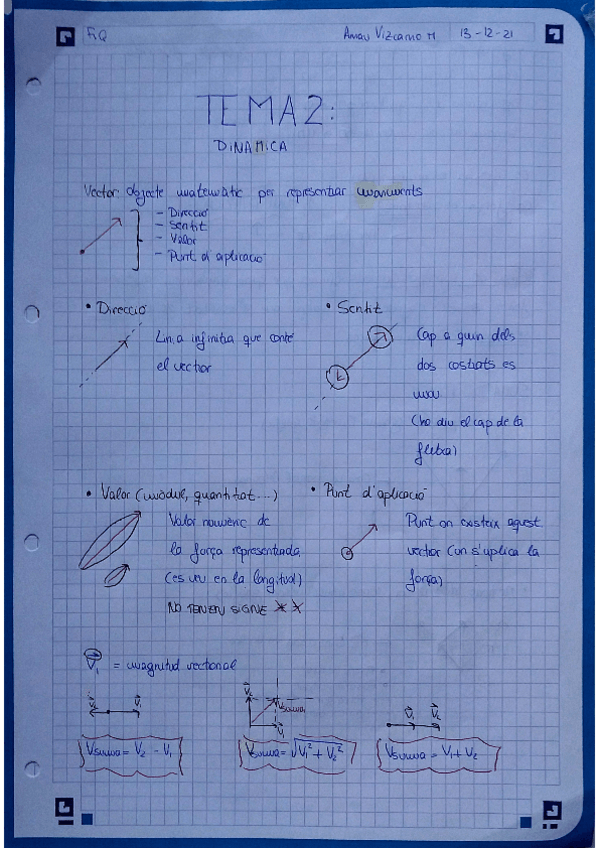 FiQ
Arnau Vizcaino M 13-12-21
TEMA 2:
DiNAMiCA
Vector: objecte matemàtic per representar moviments
- Direcció
- Sentit
- Valor
- Punt d'aplicació
• Direcció
Linia infinita que conté
el vector
• Sentit
Cap a quin dels
dos costats es
mou
(ho diu el cap de la
fletxa)
• Valor (mòdul, quantitat...)
Valor numèric de
la força representada
(es veu en la longitud)
NO TENEN SIGNE * *
• Punt d'aplicació
Punt on existeix aquest
vector (on s'aplica la
força)
V₁ = magnitud vectorial
V₂ V₁
V₂ Vsuma V₁
V₁ V₂
Vsuma = V₂ - V₁
Vsuma = √V₁² + V₂²
Vsuma = V₁ + V₂